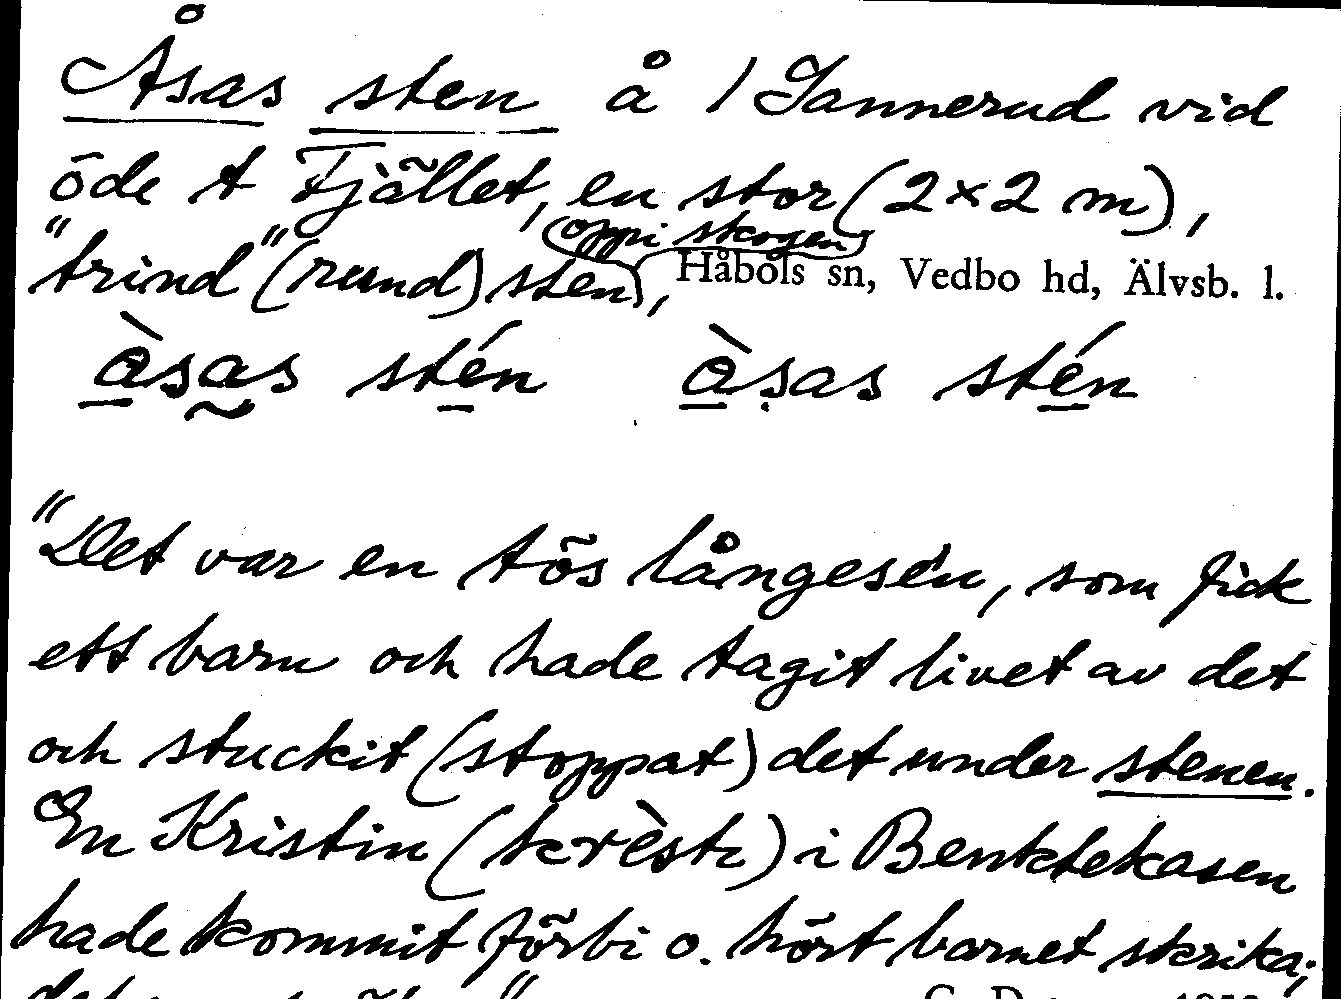 Åsas sten å 1 Jannerud vid
öde t Fjället, en stor (2×2 m),
(oppi skogen)
"trind" (rund) sten, Håbols sn, Vedbo hd, Älvsb. l.
àsas stén àsas stén
"Det var en tös långesén, som fick
ett barn och hade tagit livet av det
och stuckit (stoppat) det under stenen.
En Kristin (krèst) i Benktekasen
hade kommit förbi o. hört barnet skrika;